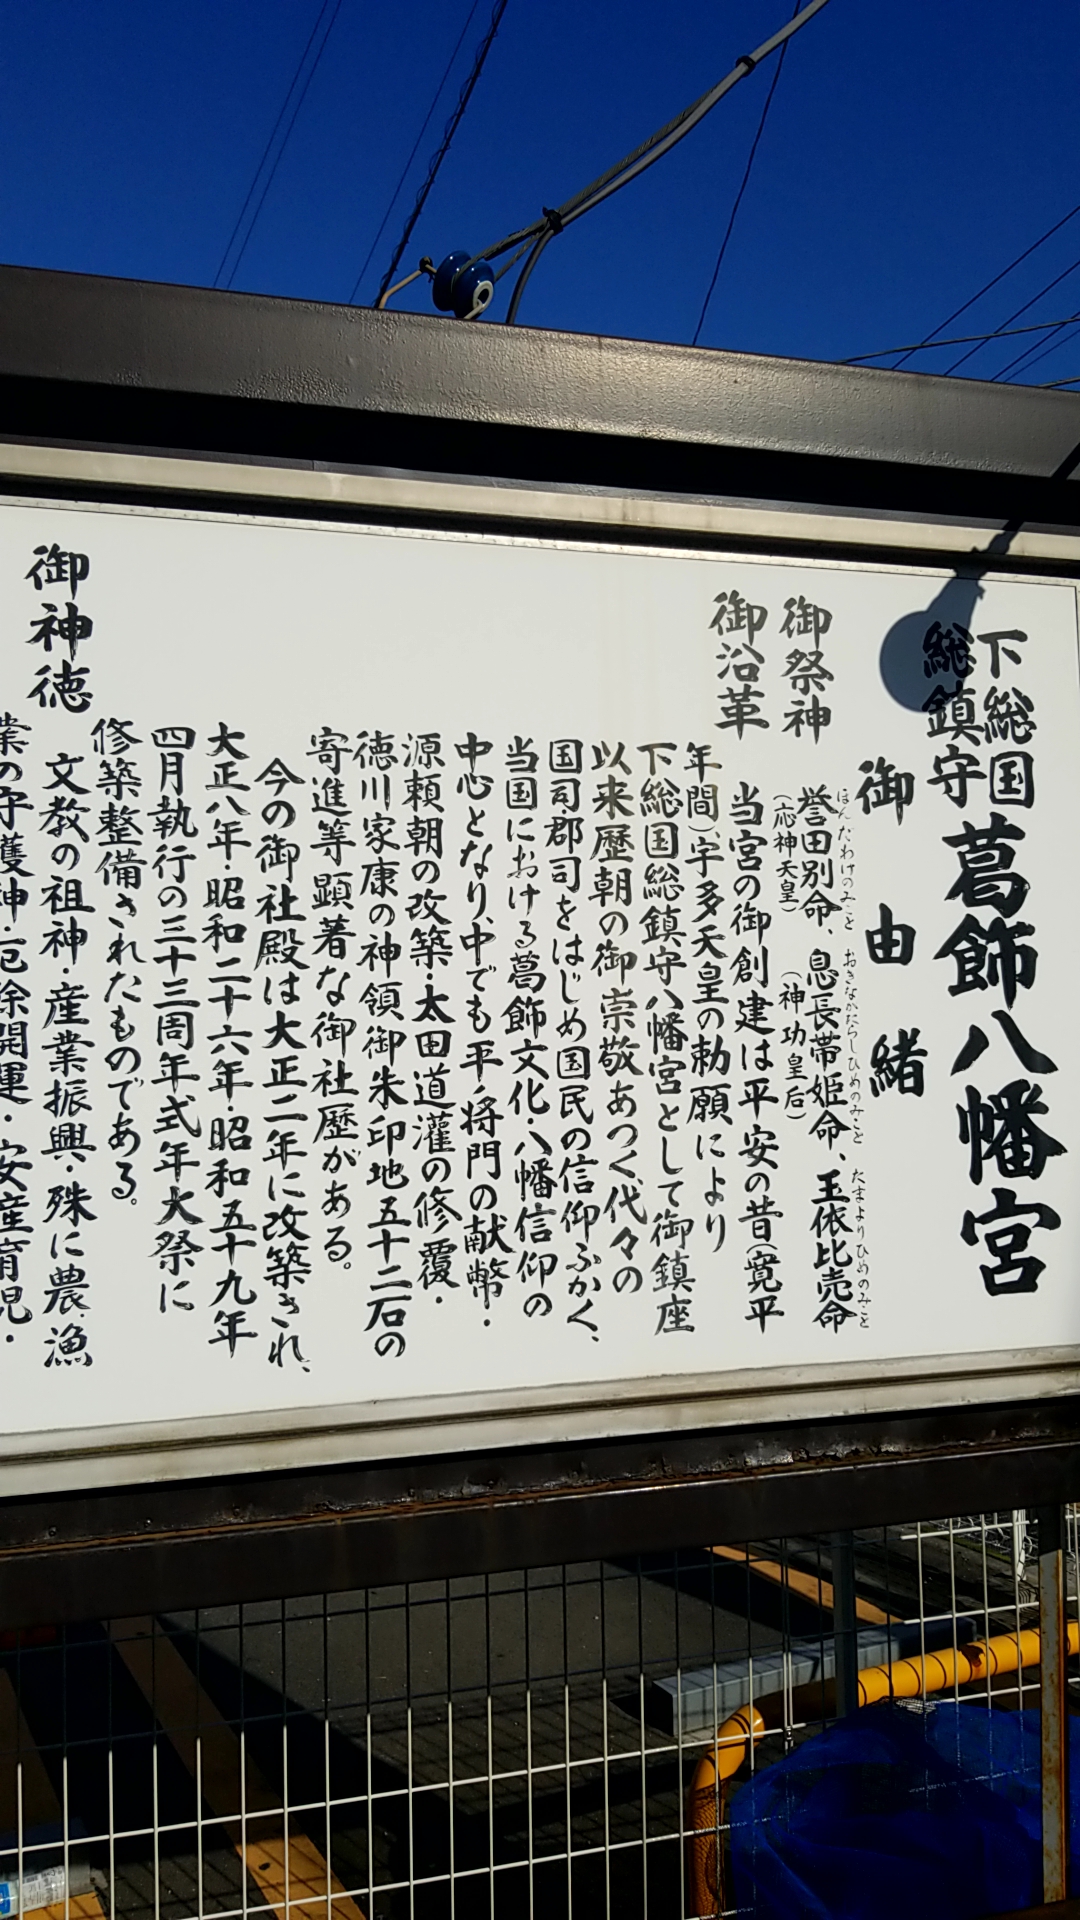 下総国
総鎮守
葛飾八幡宮
御由緒
御祭神
ほんだわけのみこと おきながたらしひめのみこと たまよりひめのみこと
誉田別命、息長帯姫命、玉依比売命
(応神天皇) (神功皇后)
御沿革
当宮の御創建は平安の昔(寛平
年間)、宇多天皇の勅願により
下総国総鎮守八幡宮として御鎮座
以来歴朝の御崇敬あつく、代々の
国司郡司をはじめ国民の信仰ふかく、
当国における葛飾文化・八幡信仰の
中心となり、中でも平ノ将門の献幣・
源頼朝の改築・太田道灌の修覆・
徳川家康の神領御朱印地五十二石の
寄進等顕著な御社歴がある。
今の御社殿は大正二年に改築され、
大正八年・昭和二十六年・昭和五十九年
四月執行の三十三周年式年大祭に
修築整備されたものである。
御神徳
文教の祖神・産業振興・殊に農・漁
業の守護神・厄除開運・安産育児・